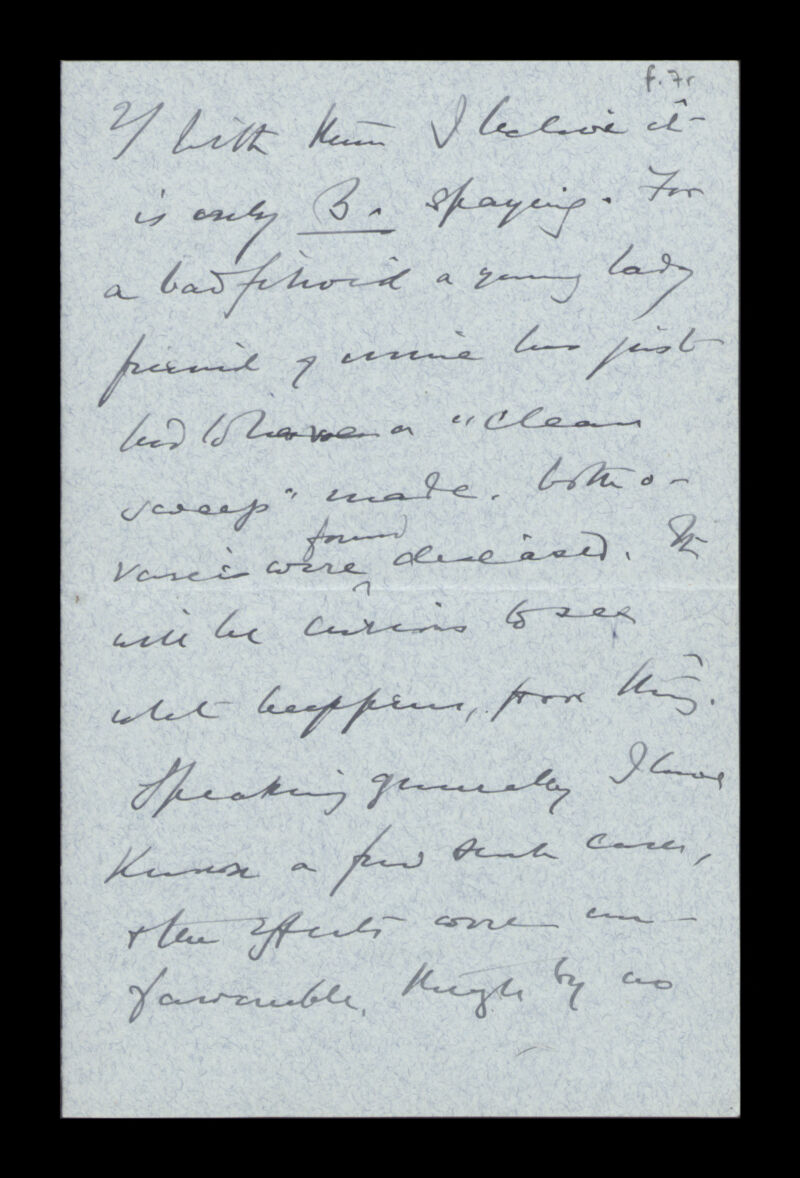 f. 7r
2/ with them I believe it
is only B. spaying. For
a bad fibroid a young lady
friend of mine has just
had to have a "clean
sweep" made. both o-
varies were found diseased. It
will be curious to see
what happens, poor thing.
Speaking generally I have
known a few such cases,
& the effects were un-
favourable, though by no